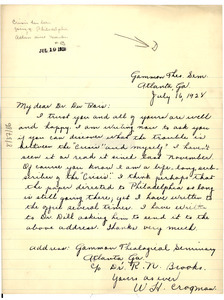 Gammon Theo. Sem.
Atlanta Ga.
July 16, 1928
My dear Dr. Du Bois:
I trust you and all of yours are well
and happy. I am writing now to ask you
if you can discover what the trouble is
between the "Crisis" and myself. I haven't
seen it or read it since last November.
Of course you know I am a life-long sub-
scriber of the "Crisis". I think perhaps that
the paper directed to Philadelphia so long
is still going there, yet I have written to the
office several times. I have written
to Dr. Dill asking him to send it to the
above address. Thanks very much
address: Gammon Theological Seminary
Atlanta Ga
c/o Dr. R. N. Brooks.
Yours as ever
W. H. Crogman